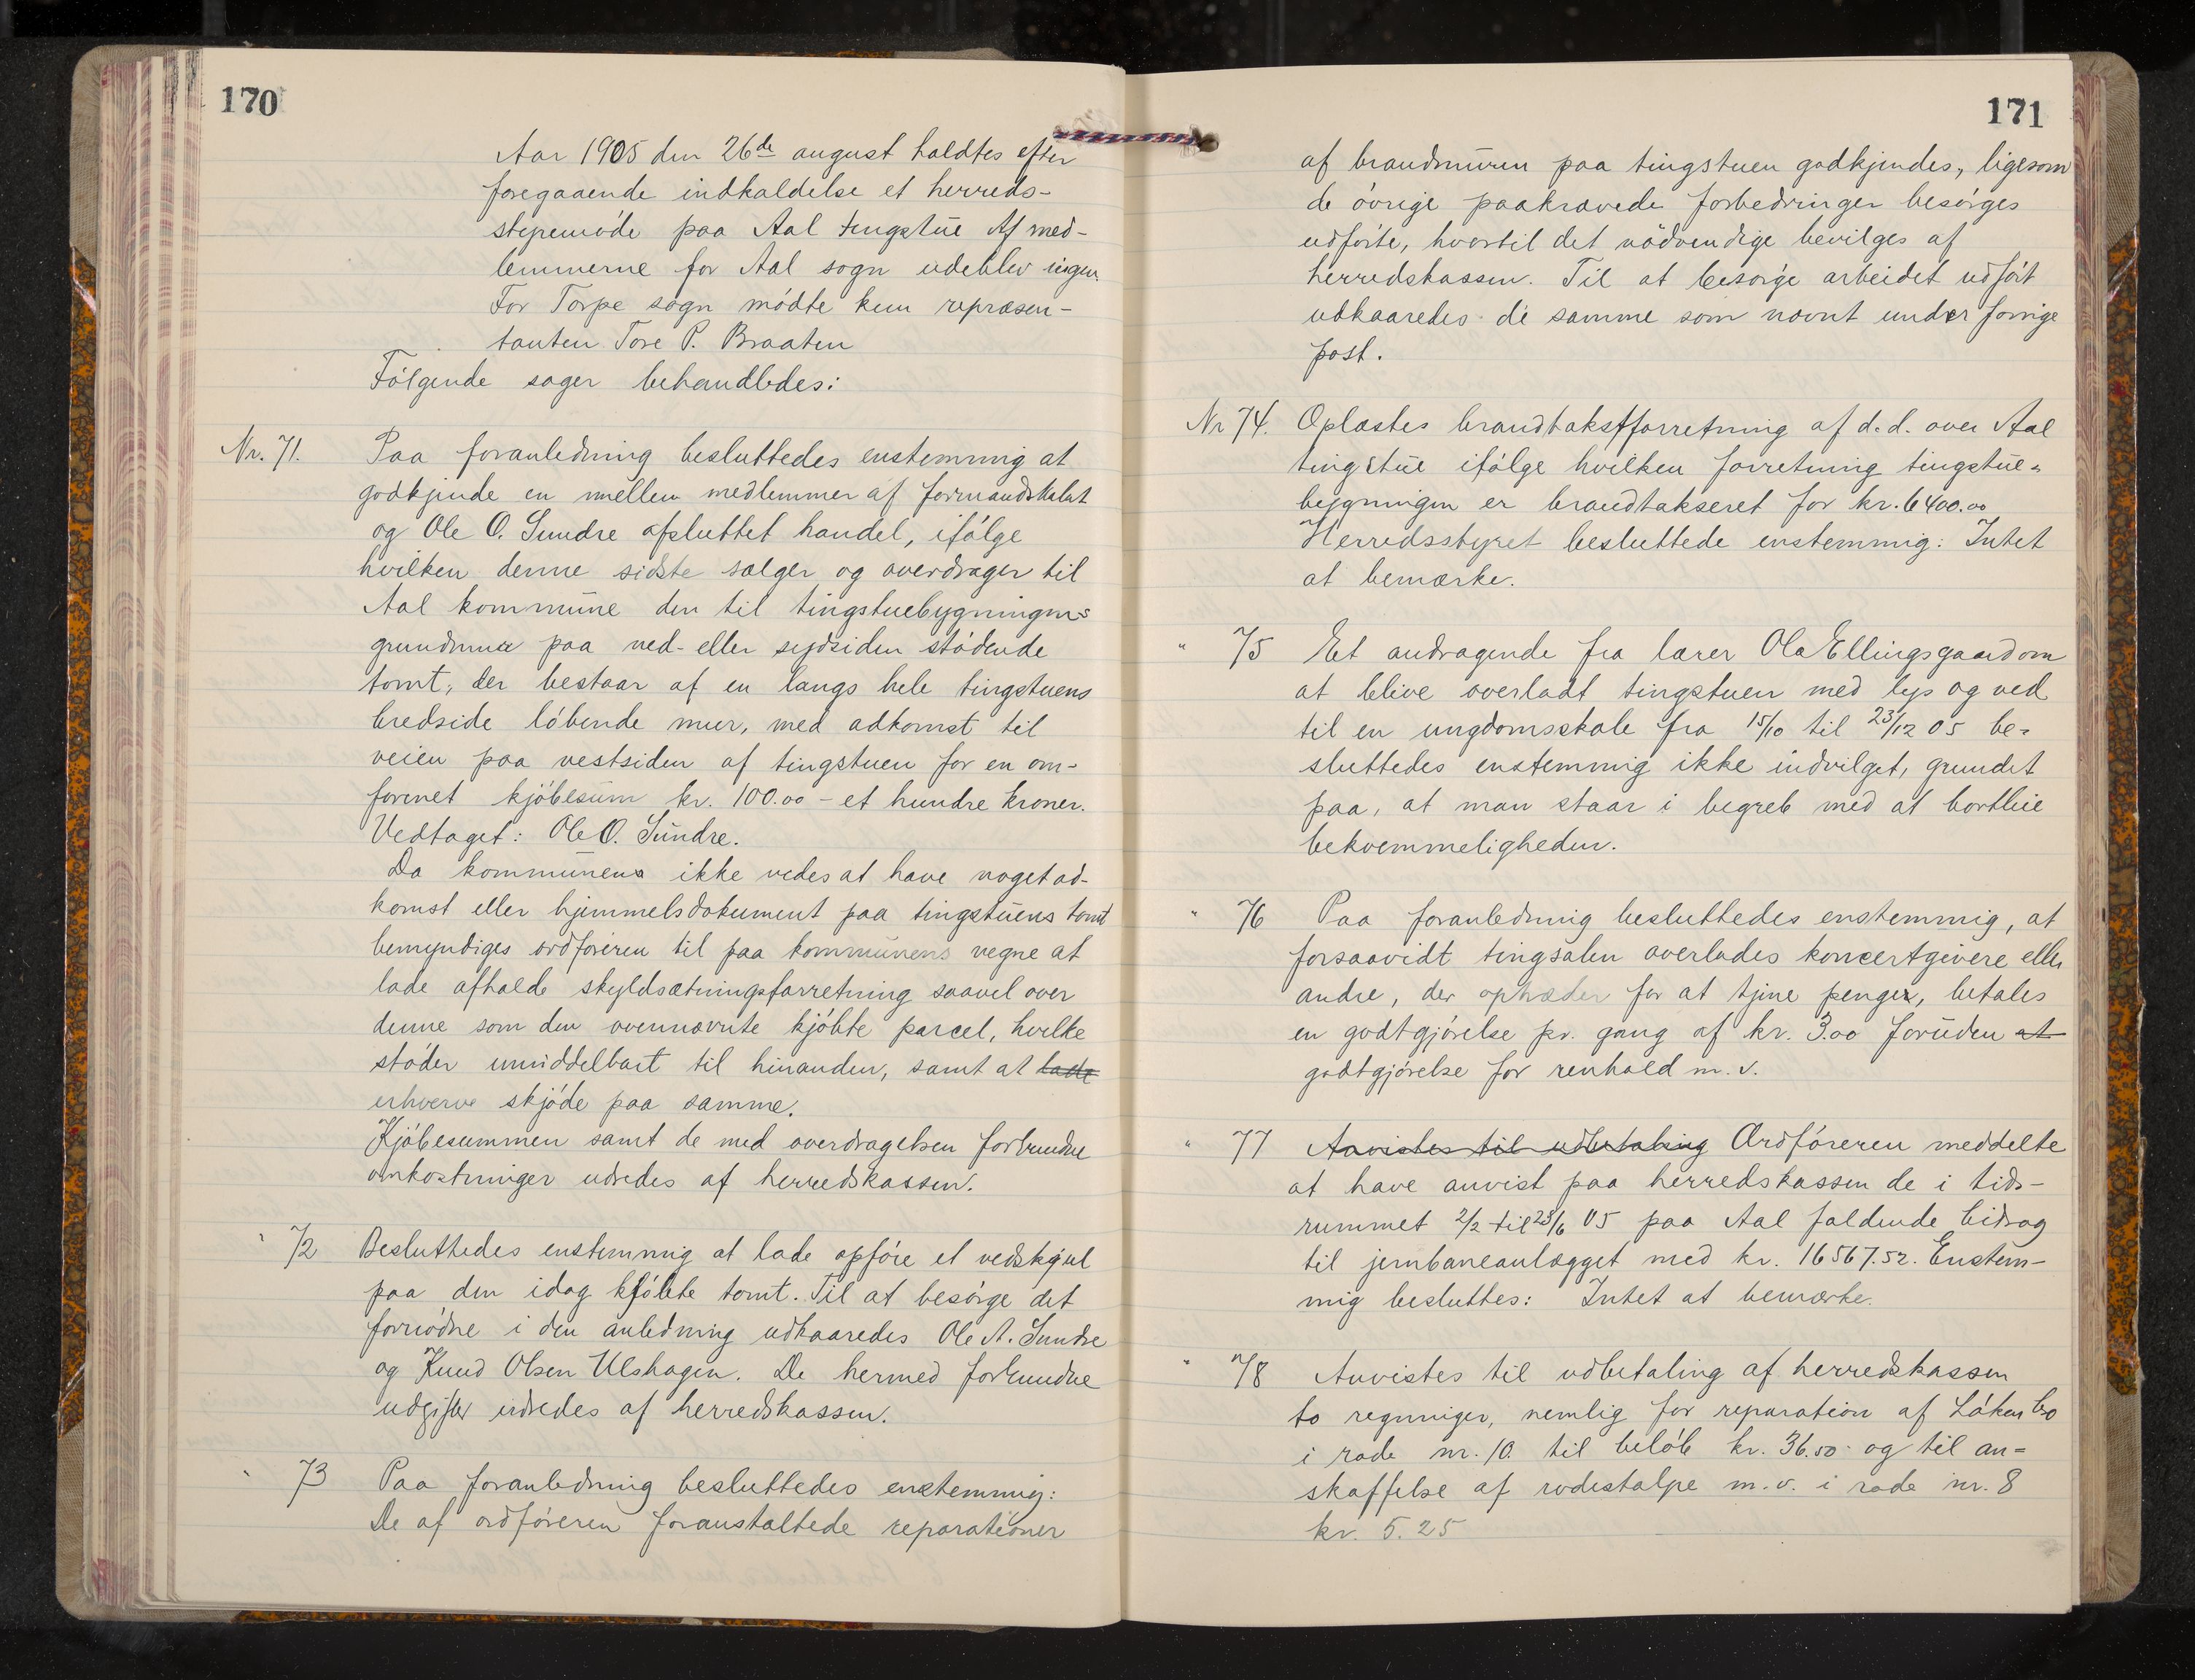 170
Aar 1905 den 26de august holdtes efter
foregaaende indkaldelse et herreds-
styremøde paa Aal tingstue Af med-
lemmerne for Aal sogn udeblev ingen.
For Torpe sogn mødte kun repræsen-
tanten Tore P. Braaten
Følgende sager behandledes:
Nr. 71. Paa foranledning besluttedes enstemmig at
godkjende en mellem medlemmer af formandskabet
og Ole O. Sundre afsluttet handel, ifølge
hvilken denne sidste sælger og overdrager til
Aal kommune den til tingstuebygningens
grundmur paa ned- eller sydsiden stødende
tomt, der bestaar af en langs hele tingstuens
bredside løbende mur, med adkomst til
veien paa vestsiden af tingstuen for en om-
forenet kjøbesum kr. 100.00 - et hundre kroner.
Vedtaget: Ole O. Sundre.
Da kommunens ikke vedes at have noget ad-
komst eller hjemmelsdokument paa tingstuens tomt
bemyndiges ordføreren til paa kommunens vegne at
lade afholde skyldsætningsforretning saavel over
denne som den ovennævnte kjøbte parcel, hvilke
støder umiddelbart til hinanden, samt at lade
erhverve skjøde paa samme.
Kjøbesummen samt de med overdragelsen forbundne
omkostninger udredes af herredskassen.
" 72 Besluttedes enstemmig at lade opføre et vedskjul
paa den idag kjøbte tomt. Til at besørge det
fornødne i den anledning udkaaredes Ole A. Sundre
og Knud Olsen Ulshagen. De hermed forbundne
udgifter udredes af herredskassen.
" 73 Paa foranledning besluttedes enstemmig:
De af ordføreren foranstaltede reparationer
171
af brandmuren paa tingstuen godkjendes, ligesom
de øvrige paakrævede forbedringer besørges
udførte, hvortil det nødvendige bevilges af
herredskassen. Til at besørge arbeidet udført
udkaaredes de samme som nævnt under forrige
post.
Nr 74. Oplæstes brandtakstforretning af d.d. over Aal
tingstue ifølge hvilken forretning tingstue-
bygningen er brandtakseret for kr. 6400.00
Herredsstyret besluttede enstemmig: Intet
at bemærke.
" 75 Et andragende fra lærer Ola Ellingsgaard om
at blive overladt tingstuen med lys og ved
til en ungdomsskole fra 15/10 til 23/12 05 be-
sluttedes enstemmig ikke indvilget, grundet
paa, at man staar i begreb med at bortleie
bekvemmeligheden.
" 76 Paa foranledning besluttedes enstemmig, at
forsaavidt tingsalen overlades koncertgivere eller
andre, der optræder for at tjene penger, betales
en godtgjørelse pr. gang af kr. 3.00 foruden at
godtgjørelse for renhold m.v.
" 77 Anvistes til udbetaling Ordføreren meddelte
at have anvist paa herredskassen de i tids-
rummet 2/2 til 23/6 05 paa Aal faldende bidrag
til jernbaneanlægget med kr. 16567.52. Enstem-
mig besluttes: Intet at bemærke.
" 78 Anvistes til udbetaling af herredskassen
to regninger, nemlig for reparation af Løken bro
i rode nr. 10. til beløb kr. 36.50 og til an-
skaffelse af rodestolpe m.v. i rode nr. 8
kr. 5.25